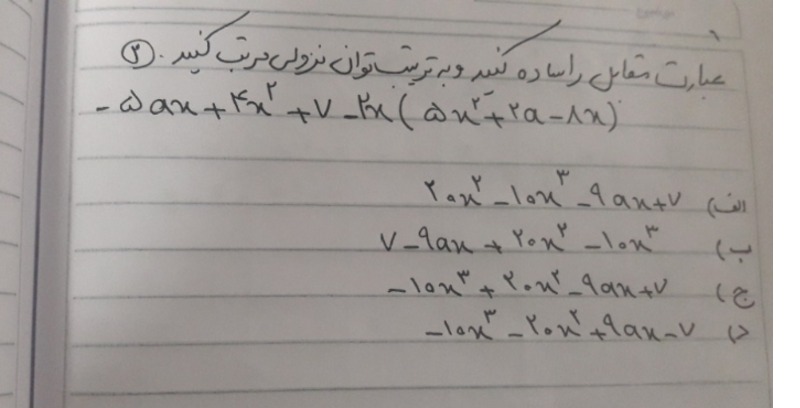 عبارت مقابل را ساده کنید و به ترتیب توان نزولی مرتب کنید. (۲)
-۵ax+۴x²+۷-۲x(۵x²+۲a-۸x)
الف) ۲۰x²-۱۰x³-۹ax+۷
ب) ۷-۹ax+۲۰x²-۱۰x³
ج) -۱۰x³+۲۰x²-۹ax+۷
د) -۱۰x³-۲۰x²+۹ax-۷